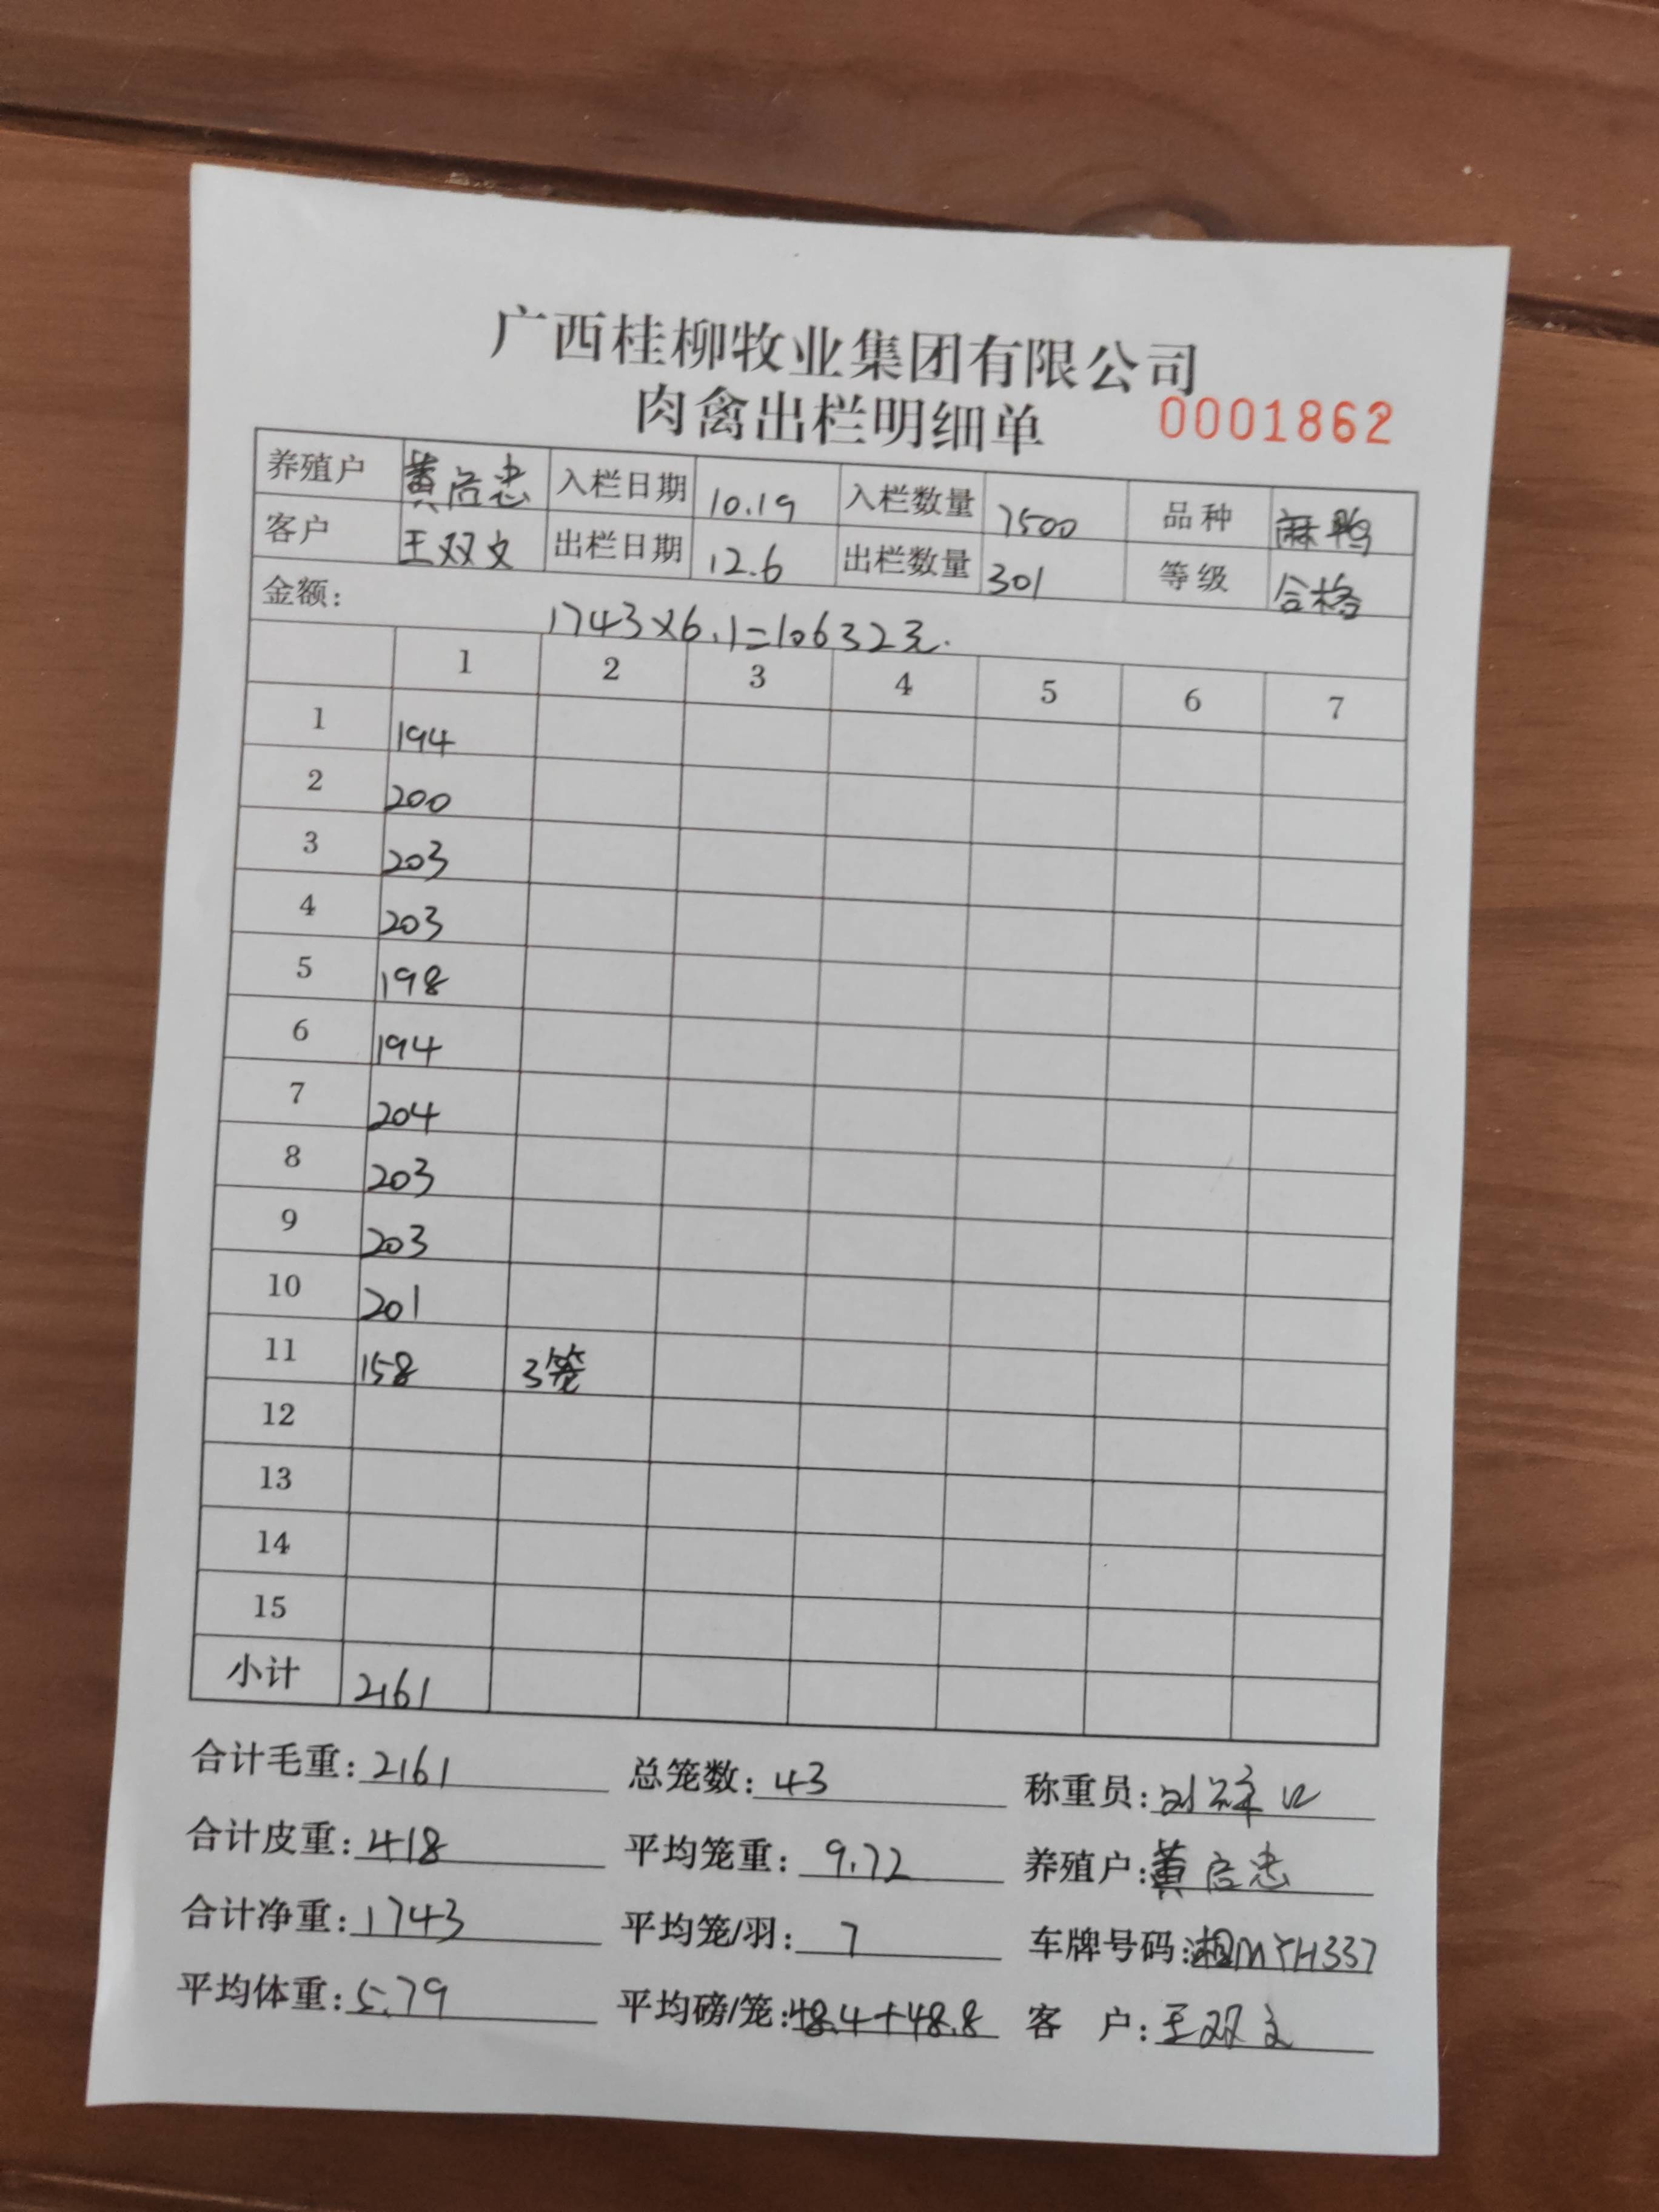 广西桂柳牧业集团有限公司
肉禽出栏明细单 0001862
养殖户 黄启忠 入栏日期 10.19 入栏数量 7500 品种 麻鸭
客户 王双文 出栏日期 12.6 出栏数量 301 等级 合格
金额: 1743×6.1=10632元.
1 2 3 4 5 6 7
1 194
2 200
3 203
4 203
5 198
6 194
7 204
8 203
9 203
10 201
11 158 3笼
12
13
14
15
小计 2161
合计毛重: 2161 总笼数: 43 称重员: 刘
合计皮重: 418 平均笼重: 9.72 养殖户: 黄启忠
合计净重: 1743 平均笼/羽: 7 车牌号码: 湘MYH337
平均体重: 5.79 平均磅/笼: 48.4+48.8 客 户: 王双文